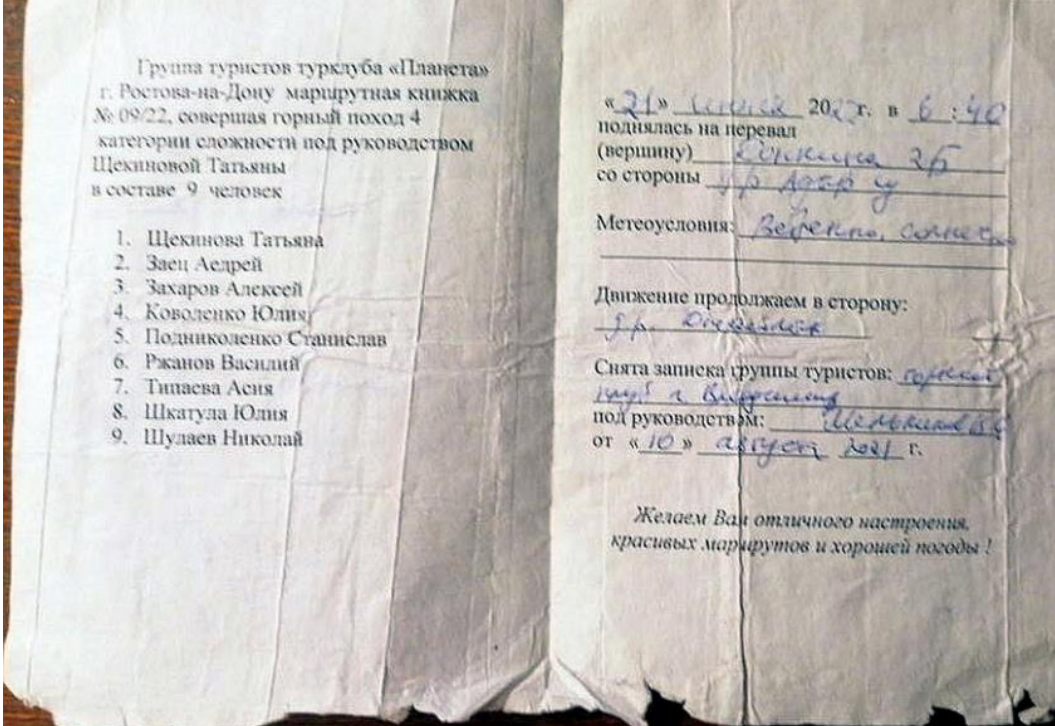 Группа туристов турклуба «Планета»
г. Ростова-на-Дону маршрутная книжка
№ 09/22, совершая горный поход 4
категории сложности под руководством
Щекиновой Татьяны
в составе 9 человек
1. Щекинова Татьяна
2. Заец Аедрей
3. Захаров Алексей
4. Коволенко Юлия
5. Подниколенко Станислав
6. Ржанов Василий
7. Типаева Асия
8. Шкатула Юлия
9. Шулаев Николай
«21» 2022 г. в 6 : 40
поднялась на перевал
(вершину) 2Б
со стороны
Метеоусловия: Ветрено, солнечно
Движение продолжаем в сторону:
Снята записка группы туристов: горный
клуб г.
под руководством:
от «10» август 2021 г.
Желаем Вам отличного настроения,
красивых маршрутов и хорошей погоды !